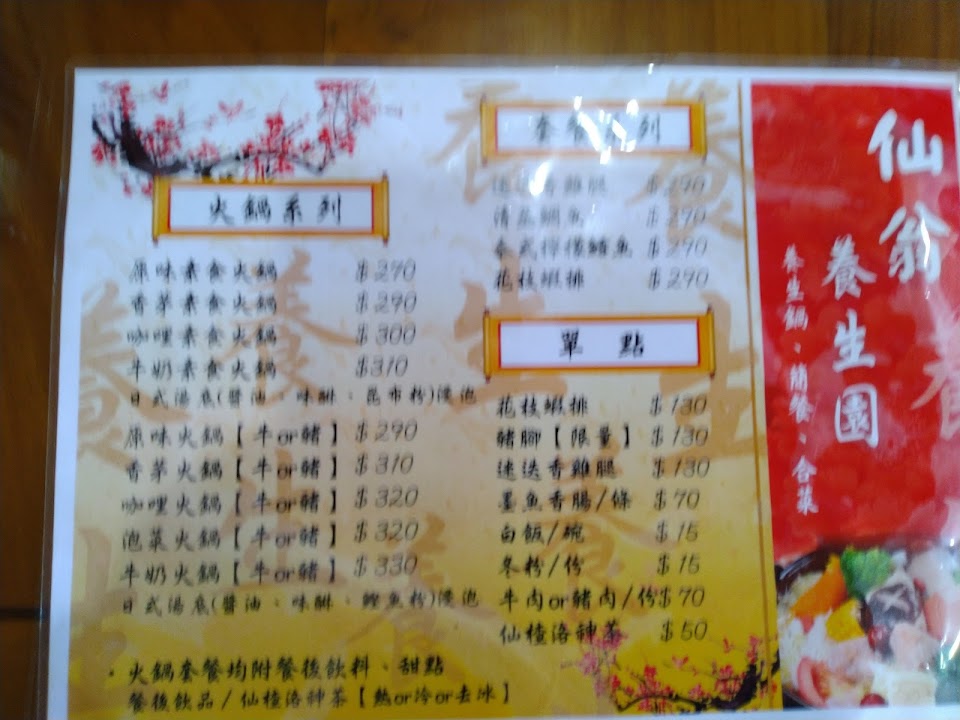 火鍋系列
原味素食火鍋 $270
香茅素食火鍋 $290
咖哩素食火鍋 $300
牛奶素食火鍋 $310
日式湯底(醬油、味醂、昆布粉)浸泡
原味火鍋【牛or豬】 $290
香茅火鍋【牛or豬】 $310
咖哩火鍋【牛or豬】 $320
泡菜火鍋【牛or豬】 $320
牛奶火鍋【牛or豬】 $330
日式湯底(醬油、味醂、鰹魚粉)浸泡
·火鍋套餐均附餐後飲料、甜點
餐後飲品/仙楂洛神茶【熱or冷or去冰】
套餐系列
迷迭香雞腿 $290
清蒸鯛魚 $290
泰式檸檬鱈魚 $290
花枝蝦排 $290
單 點
花枝蝦排 $130
豬腳【限量】 $130
迷迭香雞腿 $130
墨魚香腸/條 $70
白飯/碗 $15
冬粉/份 $15
牛肉or豬肉/份$70
仙楂洛神茶 $50
仙翁
養生園
養生鍋、簡餐、合菜